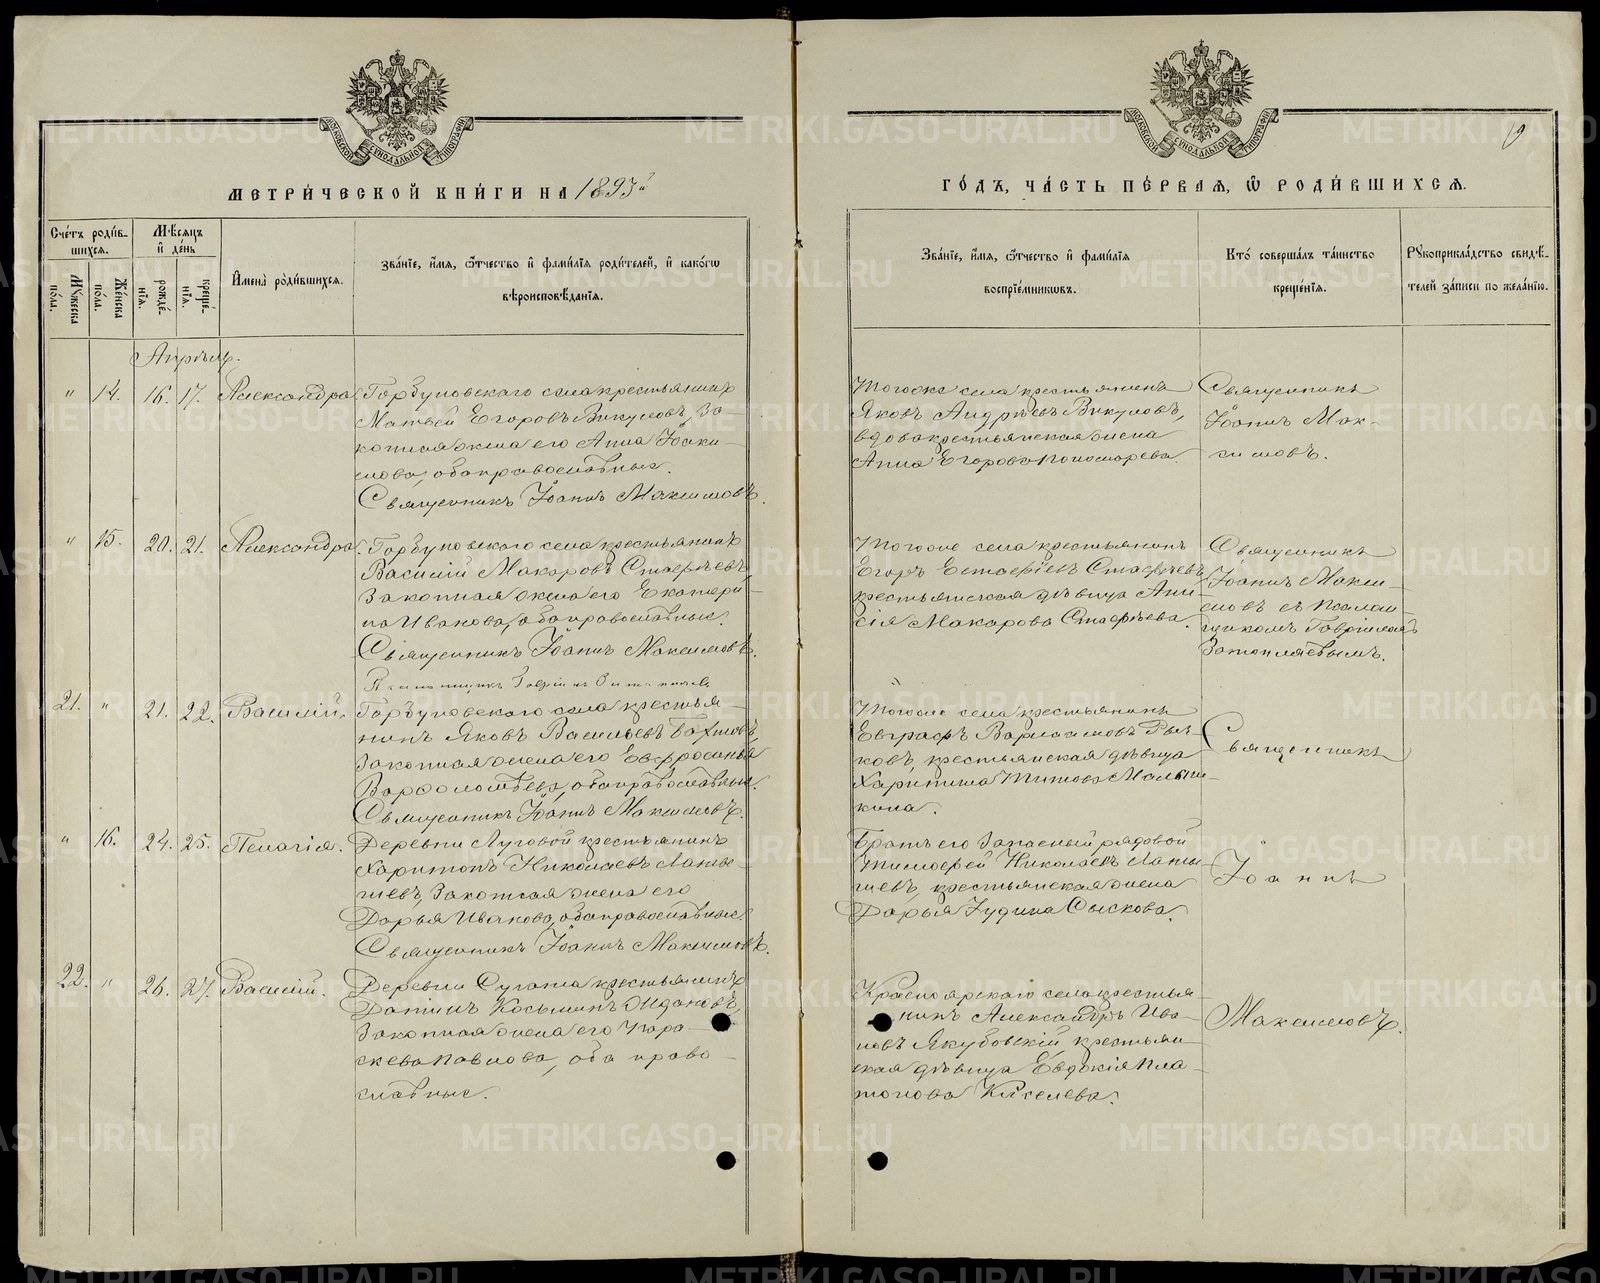 МЕТРИЧЕСКОЙ КНИГИ НА 1893й
Счетъ родившихся.
Мужеска пола.
Женска пола.
Мѣсяцъ и день
рожденія.
крещенія.
Имена родившихся.
Званіе, имя, отчество и фамилія родителей, и какого
вѣроисповѣданія.
Апрѣль.
" 14. 16. 17. Александра
Горбуновскаго села крестьянинъ
Матвей Егоровъ Викуловъ, за-
конная жена его Анна Іоаки-
мова, оба православные.
Священникъ Іоаннъ Максимовъ.
" 15. 20. 21. Александра.
Горбуновскаго села крестьянинъ
Василій Макаровъ Стафѣевъ,
законная жена его Екатери-
на Иванова, оба православные.
Священникъ Іоаннъ Максимовъ.
21. " 21. 22. Василій.
Горбуновскаго села крестья-
нинъ Яковъ Васильевъ
законная жена его Евфросинья
Варфоломѣева, оба православные.
Священникъ Іоаннъ Максимовъ.
" 16. 24. 25. Пелагія.
Деревни Луговой крестьянинъ
Харитонъ Николаевъ Латы-
шевъ, законная жена его
Дарья Иванова, оба православные
Священникъ Іоаннъ Максимовъ.
22. " 26. 27. Василій.
Деревни крестьянинъ
Косьминъ
законная жена его Пара-
скева Павлова, оба право-
славные.
ГОДЪ, ЧАСТЬ ПЕРВАЯ, Ѡ РОДИВШИХСЯ.
Званіе, имя, отчество и фамилія
воспріемниковъ.
Кто совершалъ таинство
крещенія.
Рукоприкладство свидѣ-
телей записи по желанію.
Тогоже села крестьянинъ
Яковъ Андрѣевъ Викуловъ,
вдова крестьянская жена
Анна Егорова Пономарева.
Священникъ
Іоаннъ Мак-
симовъ.
Тогоже села крестьянинъ
Егоръ Естафіевъ Стафѣевъ,
крестьянская дѣвица Ани-
сія Макарова Стафѣева.
Священникъ
Іоаннъ Макси-
мовъ съ псалом-
щикомъ Гавріиломъ
Тогоже села крестьянинъ
Евграфъ Варлаамовъ Рыч-
ковъ, крестьянская дѣвица
Харитина Титова Малыш-
кина.
Священникъ
Братъ его запасный рядовой
Тимофей Николаевъ Латы-
шевъ, крестьянская жена
Дарья Іудина Сыскова.
Іоаннъ
Красноярскаго села крестья-
нинъ Александръ Ива-
новъ Якубовскій, крестьян-
ская дѣвица Евдокія Пла-
тонова Киселева.
Максимовъ.
METRIKI.GASO-URAL.RU